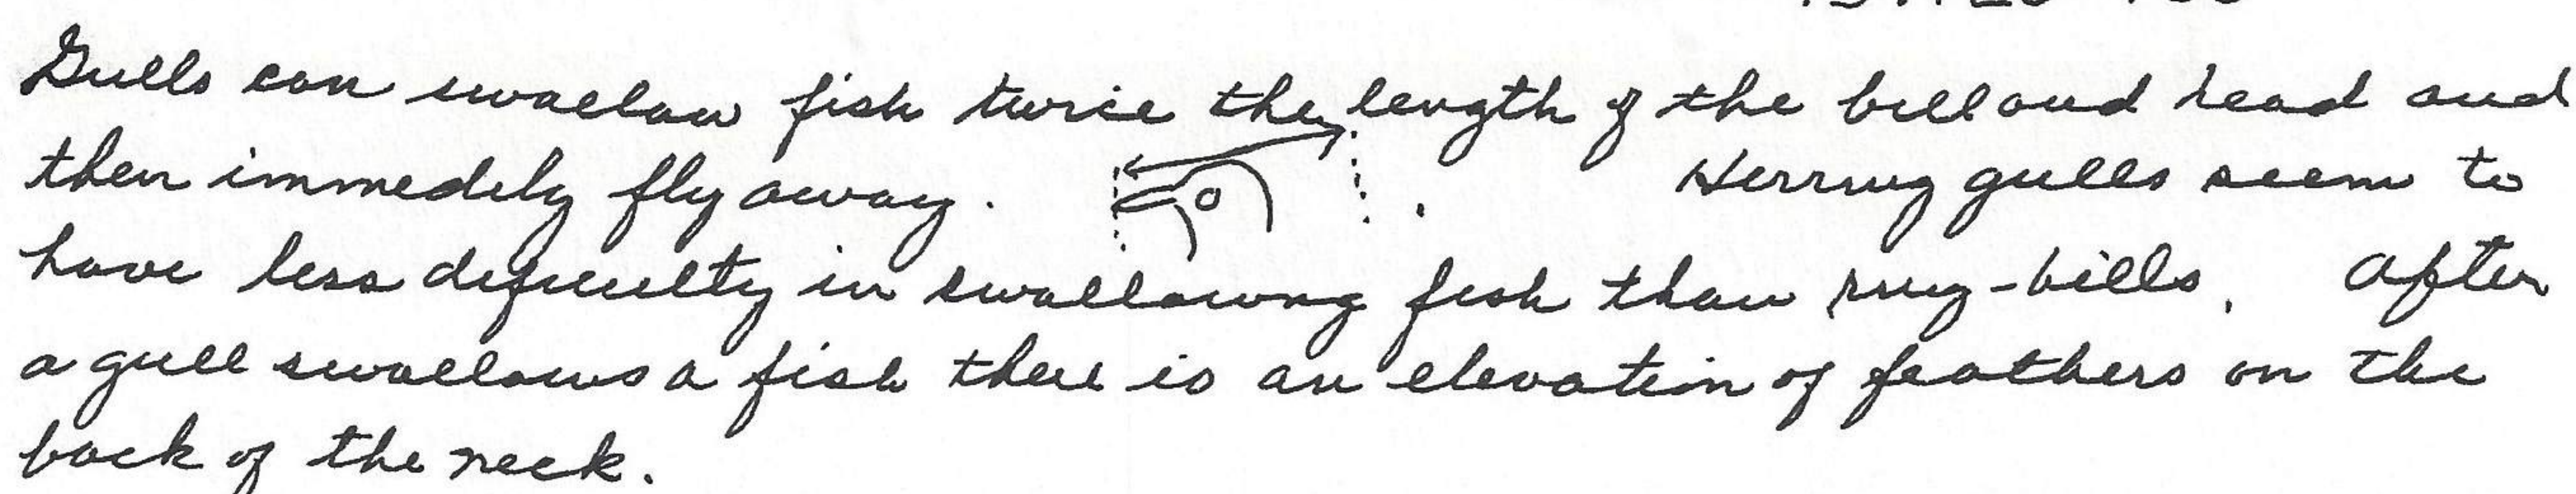 Gulls can swallow fish twice the length of the bill and head and
then immedily fly away. Herring gulls seem to
have less dificulty in swallowing fish than ring-bills. After
a gull swallows a fish there is an elevation of feathers on the
back of the neck.